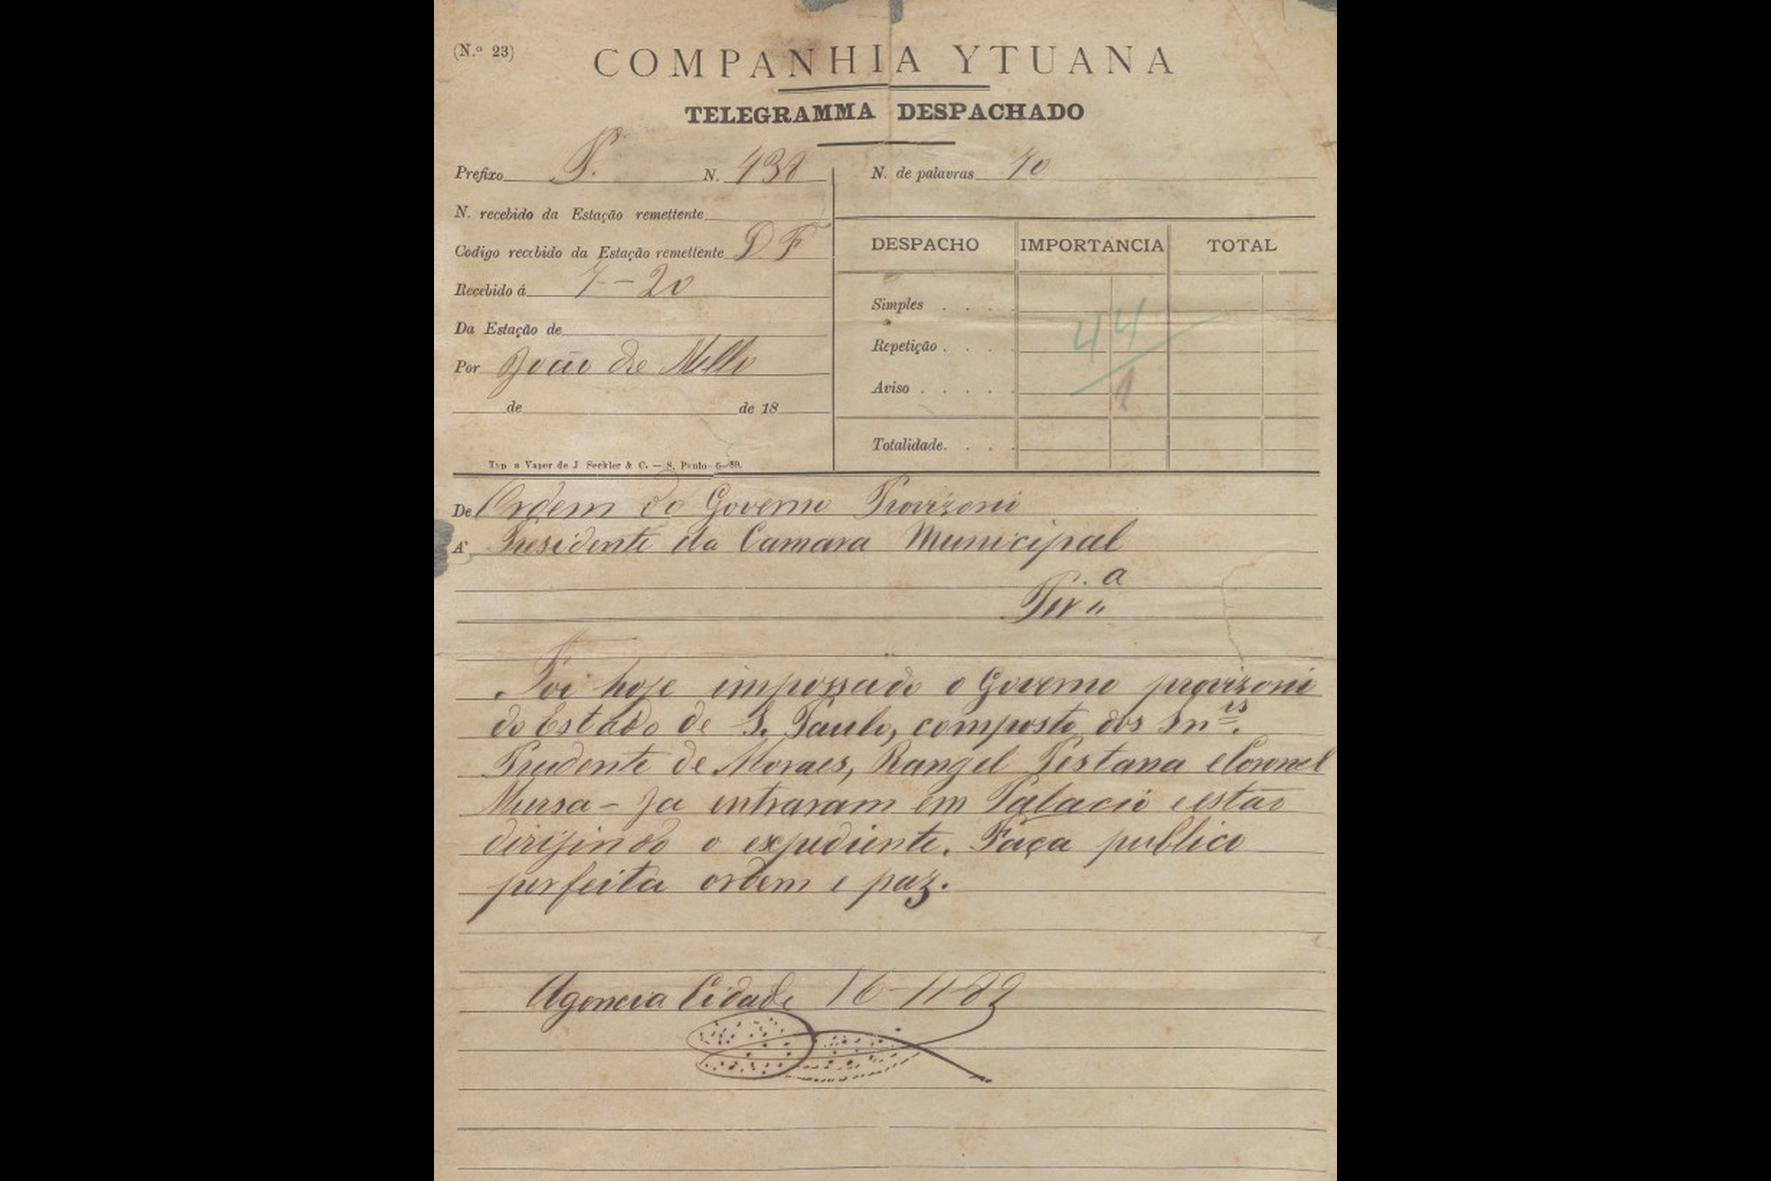 (N.º 23)
COMPANHIA YTUANA
TELEGRAMMA DESPACHADO
Prefixo P. N. 438
N. de palavras 70
N. recebido da Estação remettente
Codigo recebido da Estação remettente D F
Recebido á 7-20
Da Estação de
Por João de Mello
de de 18
DESPACHO IMPORTANCIA TOTAL
Simples . . . .
Repetição . . . .
Aviso . . . .
Totalidade. . . .
44
1
Typ. a Vapor de J Seckler & C. — S. Paulo- 6-89.
De Ordem do Governo Provizorio
A' Presidente da Camara Municipal
Pir.ª
Foi hoje impossado o Governo provizorio
do Estado de S. Paulo, composto dos Snres.
Prudente de Moraes, Rangel Pestana e Coronel
Mursa - Ja entraram em Palacio e estão
dirijindo o expediente. Faça publico
perfeita ordem e paz.
Agencia Cidade 16-11-89